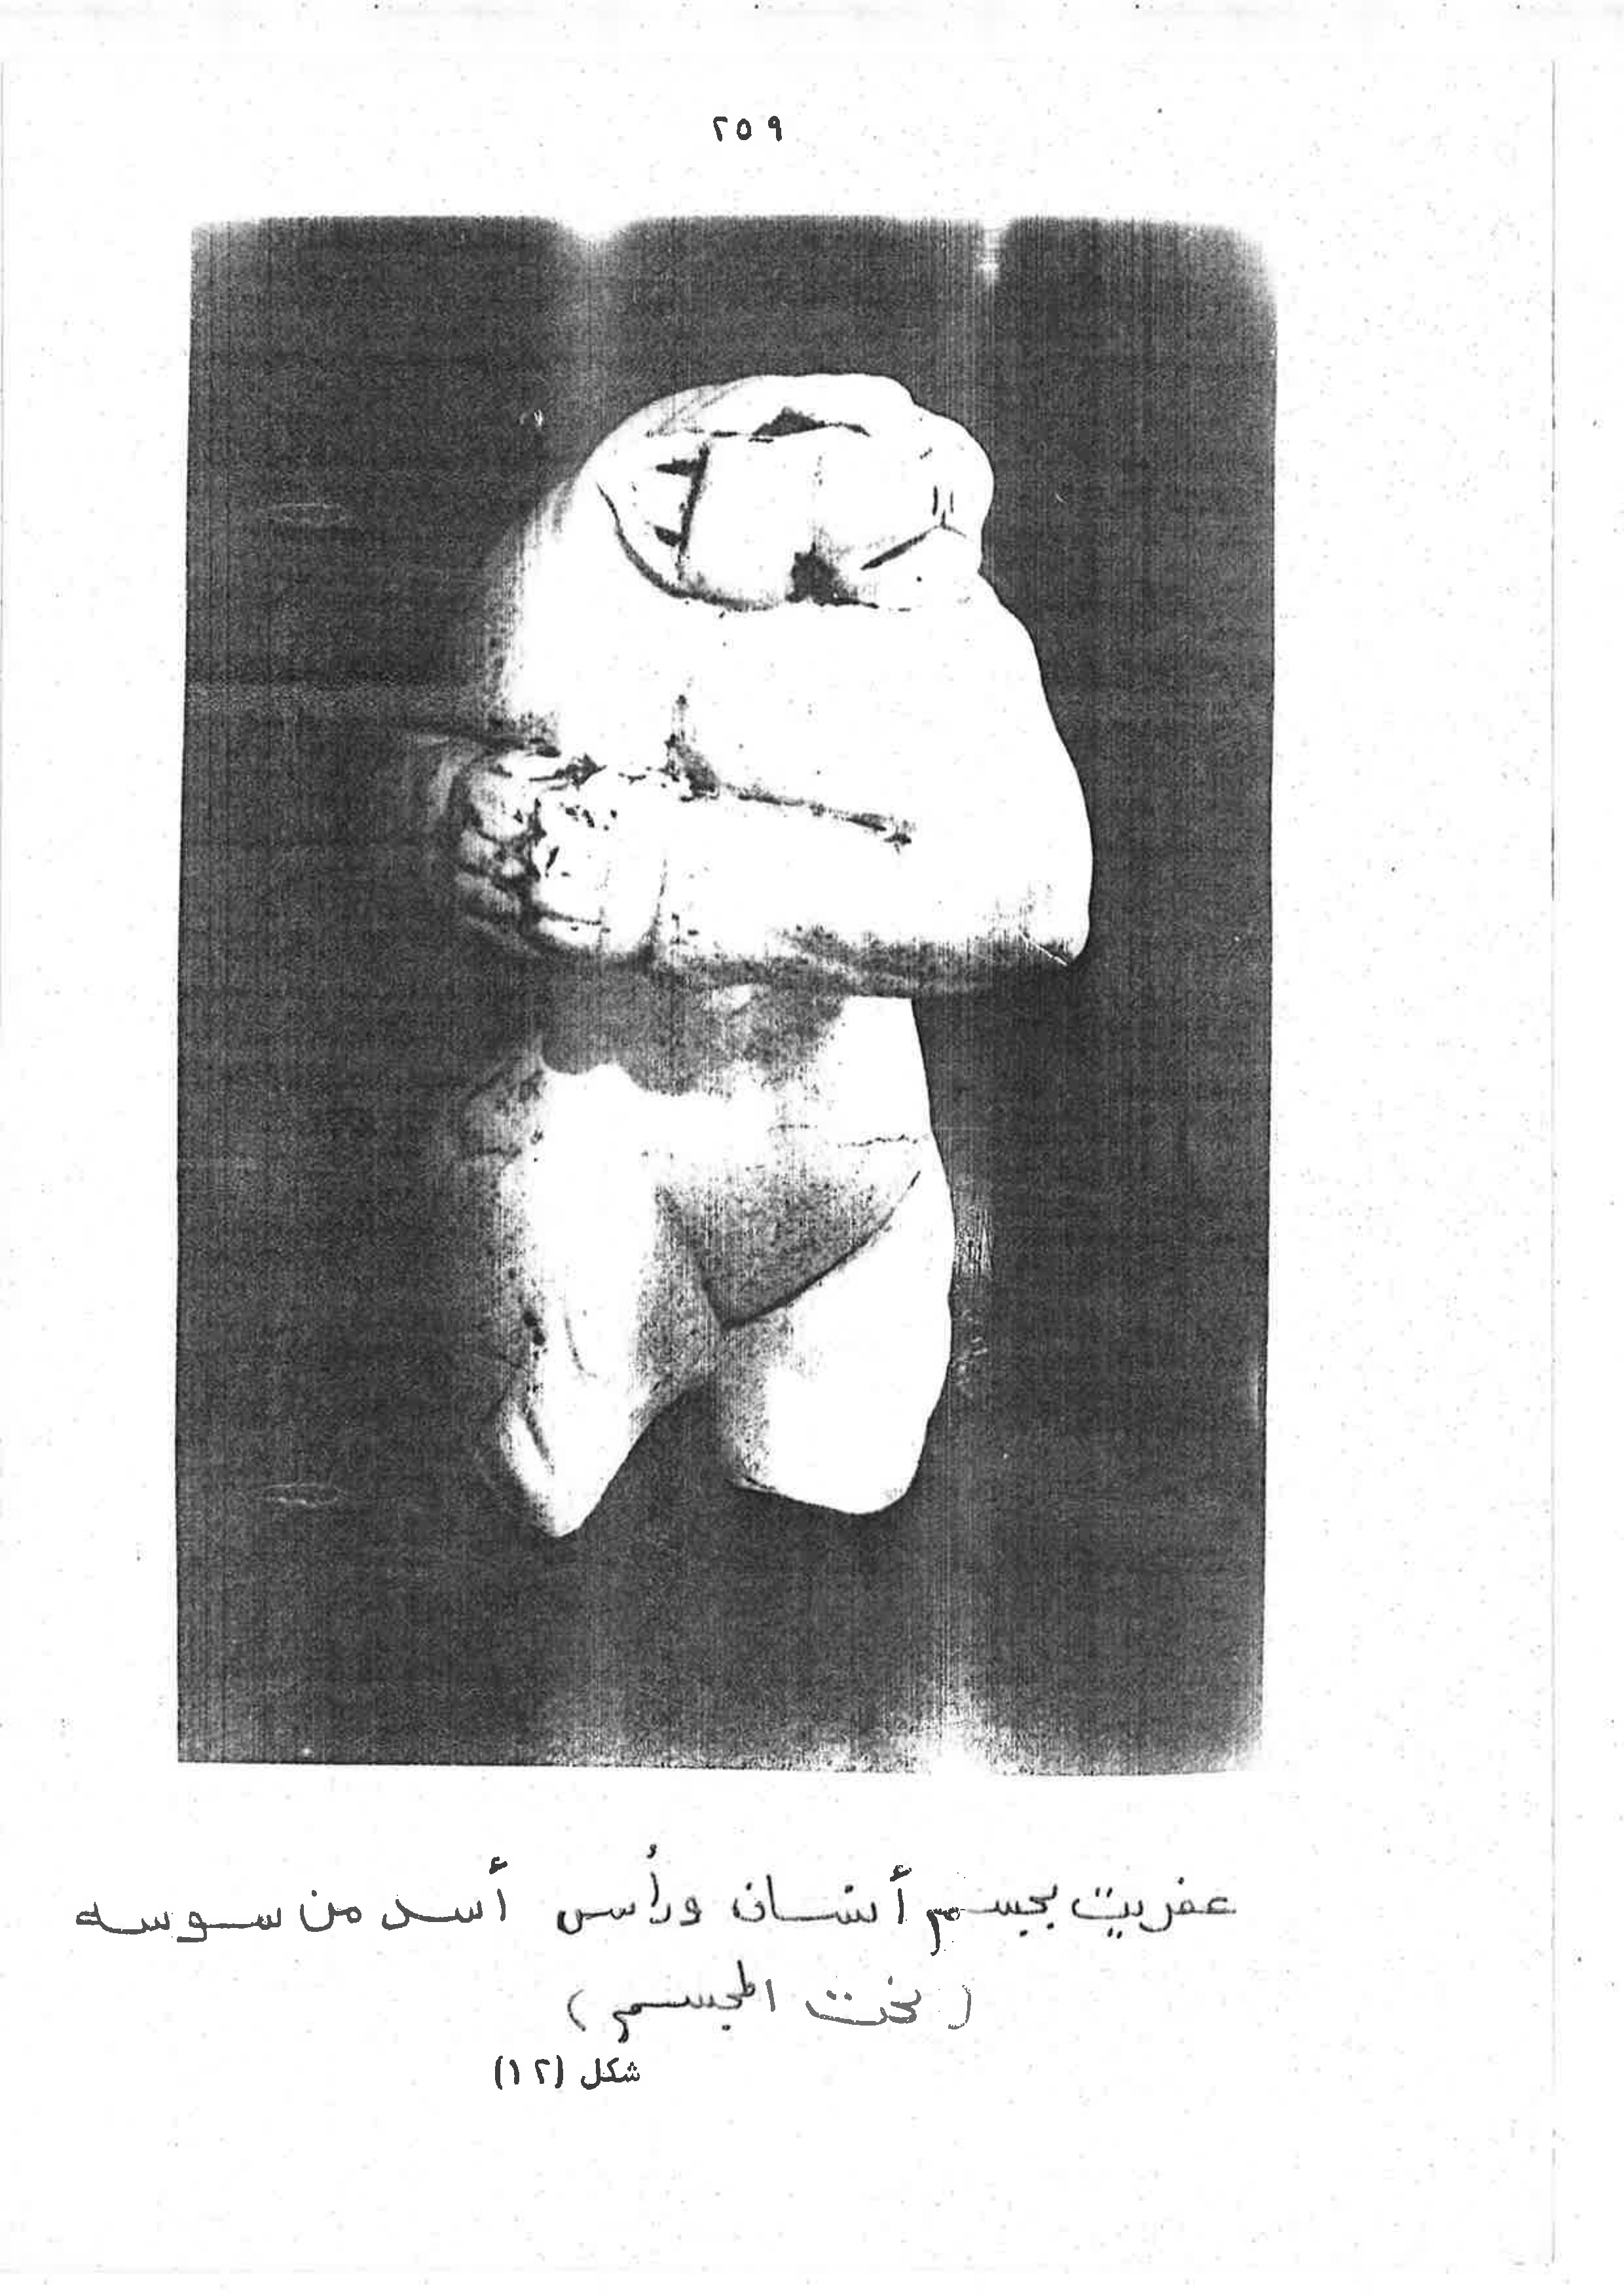 ٢٥٩
عفريت بجسم أنسان ورأس أسد من سوسه
(نحت المجسم)
شكل (١٢)